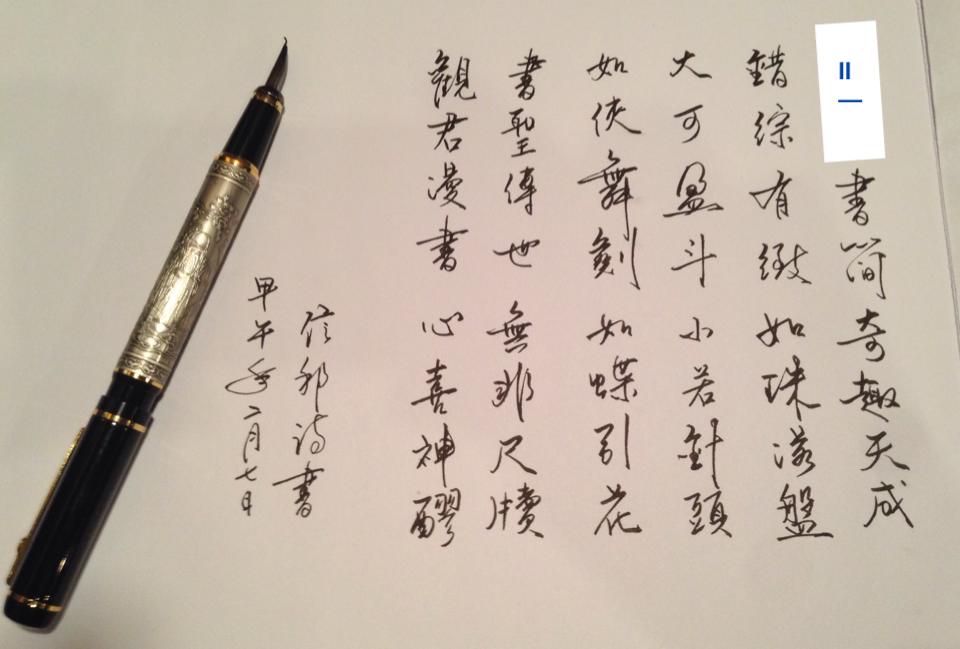 書簡奇趣天成
錯綜有緻如珠落盤
大可盈斗小若針頭
如俠舞劍如蝶引花
書聖傳世無非尺牘
觀君漫書心喜神醪
信邦詩書
甲午年二月七日